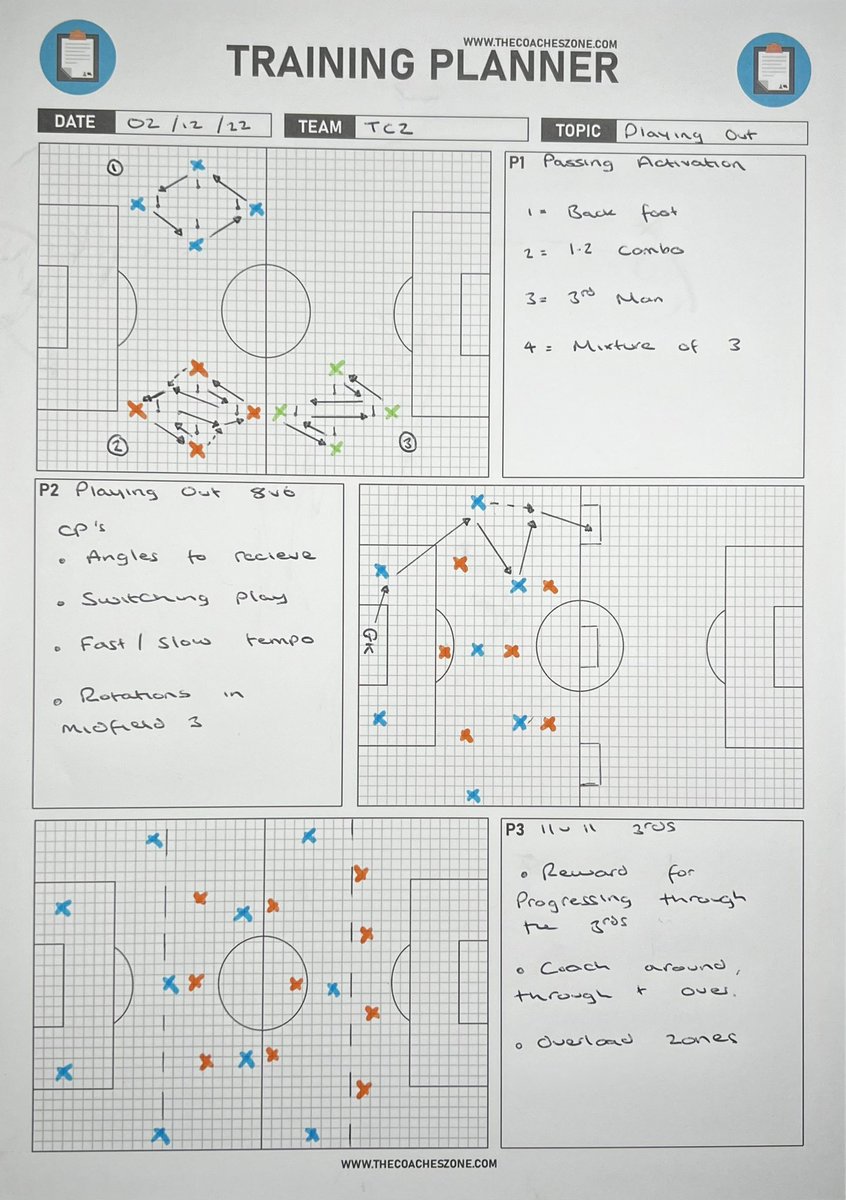 WWW.THECOACHESZONE.COM
TRAINING PLANNER
DATE 02/12/22 TEAM TCZ TOPIC Playing Out
1
2
3
P1 Passing Activation
1 = Back foot
2 = 1-2 Combo
3 = 3rd Man
4 = Mixture of 3
P2 Playing Out 8v6
CP's
• Angles to recieve
• Switching play
• Fast / Slow tempo
• Rotations in
Midfield 3
GK
P3 11v11 3rds
• Reward for
Progressing through
the 3rds
• Coach around,
through + over.
• Overload zones
WWW.THECOACHESZONE.COM